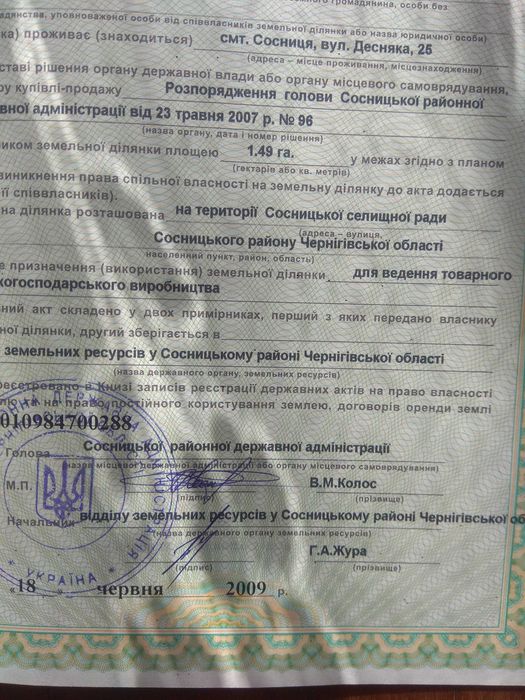 громадянина, особи без
адянства, уповноваженої особи від співвласників земельної ділянки або назва юридичної особи)
ка) проживає (знаходиться) смт. Сосниця, вул. Десняка, 25
(адреса – місце проживання, місцезнаходження)
ставі рішення органу державної влади або органу місцевого самоврядування,
ру купівлі-продажу Розпорядження голови Сосницької районної
вної адміністрації від 23 травня 2007 р. № 96
(назва органу, дата і номер рішення)
ником земельної ділянки площею 1.49 га. у межах згідно з планом
(гектарів або кв. метрів)
виникнення права спільної власності на земельну ділянку до акта додається
її співвласників).
на ділянка розташована на території Сосницької селищної ради
(адреса – вулиця,
Сосницького району Чернігівської області
населений пункт, район, область)
е призначення (використання) земельної ділянки для ведення товарного
когосподарського виробництва
ний акт складено у двох примірниках, перший з яких передано власнику
ної ділянки, другий зберігається в
земельних ресурсів у Сосницькому районі Чернігівської області
(назва державного органу, земельних ресурсів)
реєстровано в Книзі записів реєстрації державних актів на право власності
лю та на право постійного користування землею, договорів оренди землі
010984700288
Сосницької районної державної адміністрації
Голова
назва місцевої державної адміністрації або органу місцевого самоврядування)
М.П. В.М.Колос
(підпис) (прізвище)
Начальник відділу земельних ресурсів у Сосницькому районі Чернігівської об
(назва державного органу земельних ресурсів)
Г.А.Жура
(підпис) (прізвище)
«18 » червня 2009 р.
УКРАЇНА